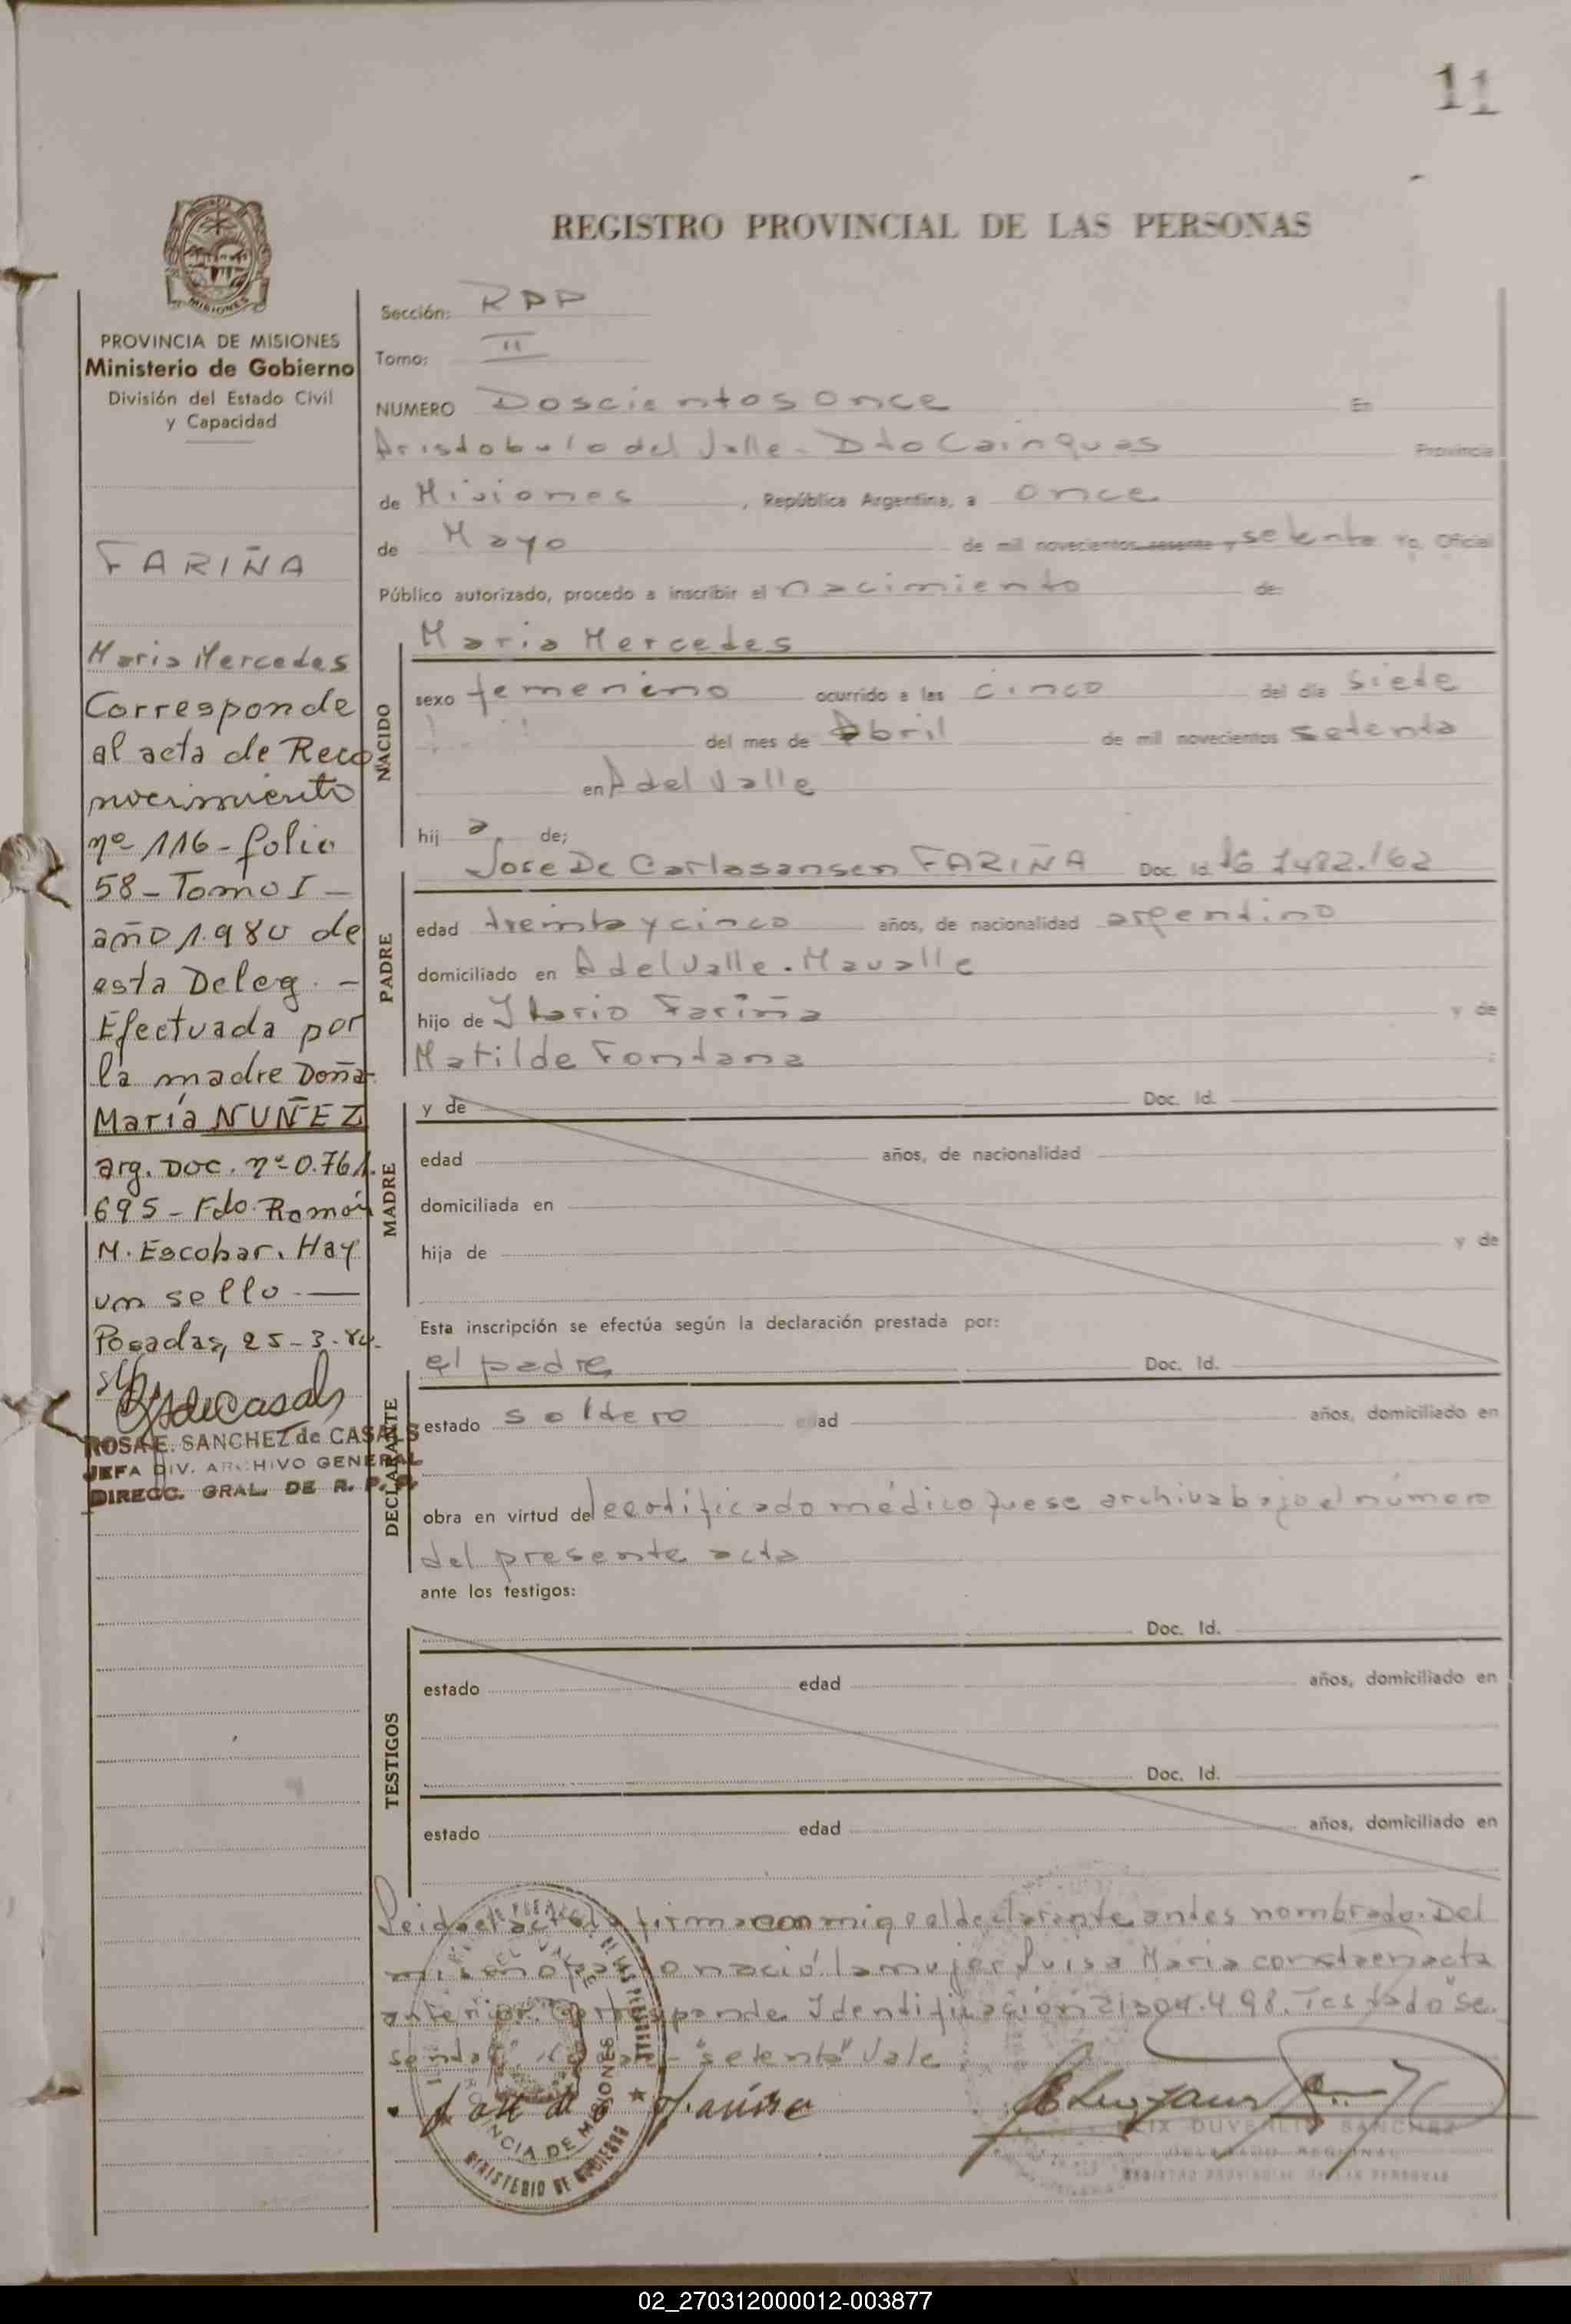 11
REGISTRO PROVINCIAL DE LAS PERSONAS
MISIONES
PROVINCIA DE MISIONES
Ministerio de Gobierno
División del Estado Civil
y Capacidad
FARIÑA
Maria Mercedes
Corresponde
al acta de Reco
nocimiento
nº 116 - folio
58 - Tomo I -
año 1.980 de
esta Deleg. -
Efectuada por
la madre Doña
María NUÑEZ
arg. Doc. nº 0.761.
695 - Fdo. Ramón
M. Escobar. Hay
un sello. —
Posadas, 25-3-80.
ROSA E. SANCHEZ de CASALS
JEFA DIV. ARCHIVO GENERAL
DIRECC. GRAL. DE R. P. P.
Sección: RPP
Tomo: II
NUMERO Doscientos once En
Aristobulo del Valle - Dto Cainguas Provincia
de Misiones, República Argentina, a once
de Mayo de mil novecientos sesenta y setenta Yo, Oficial
Público autorizado, procedo a inscribir el nacimiento de:
NACIDO
Maria Mercedes
sexo femenino ocurrido a las cinco del día siete
del mes de Abril de mil novecientos setenta
en A del Valle
hij a de;
PADRE
Jose De Carlasansen FARIÑA Doc. Id. 7.482.162
edad treinta y cinco años, de nacionalidad argentino
domiciliado en A del Valle - Mavalle
hijo de Ilario Fariña y de
Matilde Fontana ;
MADRE
y de Doc. Id.
edad años, de nacionalidad
domiciliada en
hija de y de
Esta inscripción se efectúa según la declaración prestada por:
DECLARANTE
el padre Doc. Id.
estado soltero edad años, domiciliado en
obra en virtud del certificado médico que se archiva bajo el número
del presente acta
ante los testigos:
TESTIGOS
Doc. Id.
estado edad años, domiciliado en
Doc. Id.
estado edad años, domiciliado en
Leida el acta la firma con migo el declarante antes nombrado. Del
mismo parto nació la mujer Luisa Maria consta en acta
anterior. Corresponde Identificación 21.304.498. Testado "se
senta y" "setenta" Vale
PROVINCIA DE MISIONES
MINISTERIO DE GOBIERNO
José d Fariña
FELIX DUVERLIS SANCHEZ
DELEGADO REGIONAL
REGISTRO PROVINCIAL DE LAS PERSONAS
02_270312000012-003877